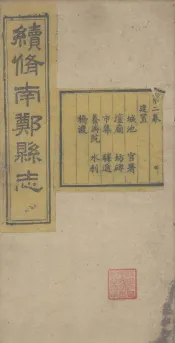 續修南鄭縣志
第二卷
建置
城池 官署
壇廟 坊碑
市集 驛遞
養濟院 水利
橋樑